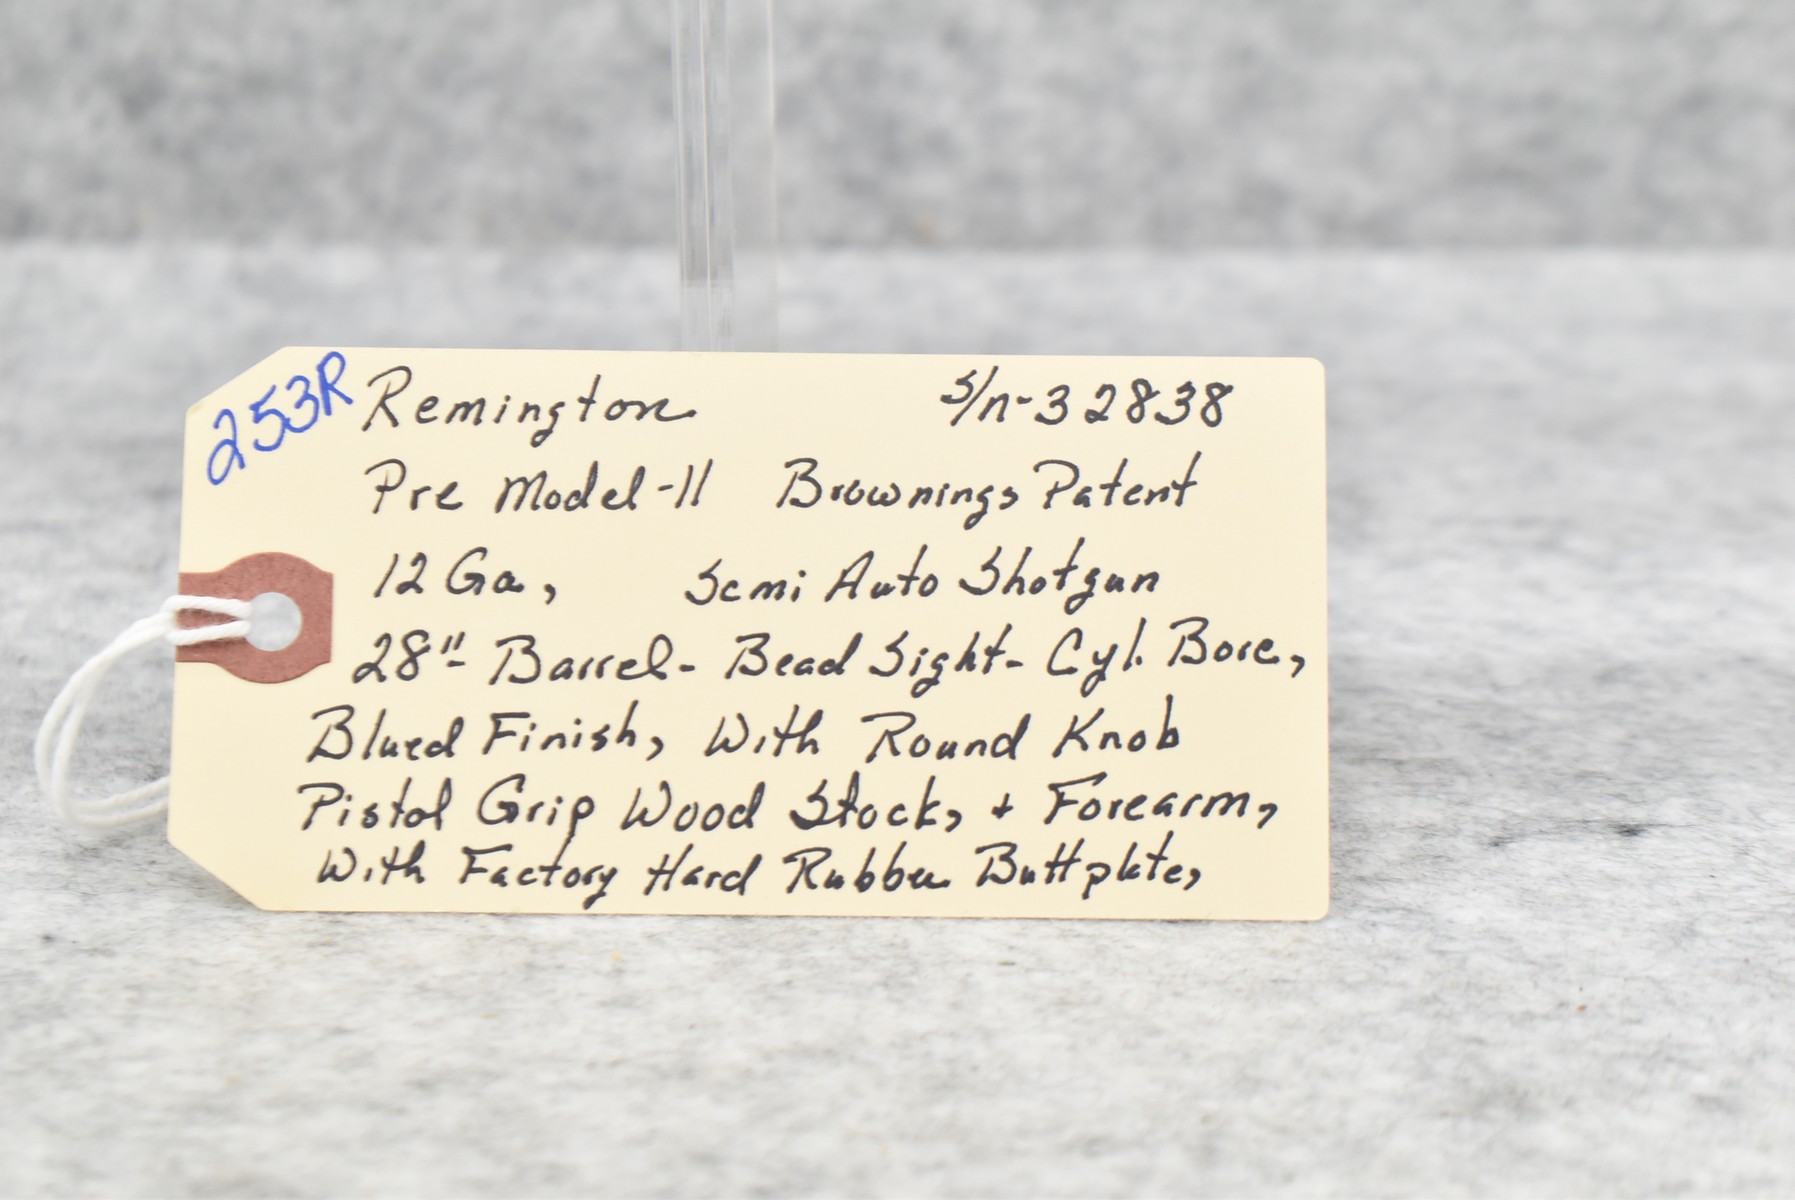 253R
Remington S/n-32838
Pre Model-11 Brownings Patent
12 Ga, Semi Auto Shotgun
28"- Barrel- Bead Sight- Cyl. Bore,
Blued Finish, With Round Knob
Pistol Grip Wood Stock, + Forearm,
With Factory Hard Rubber Buttplate,